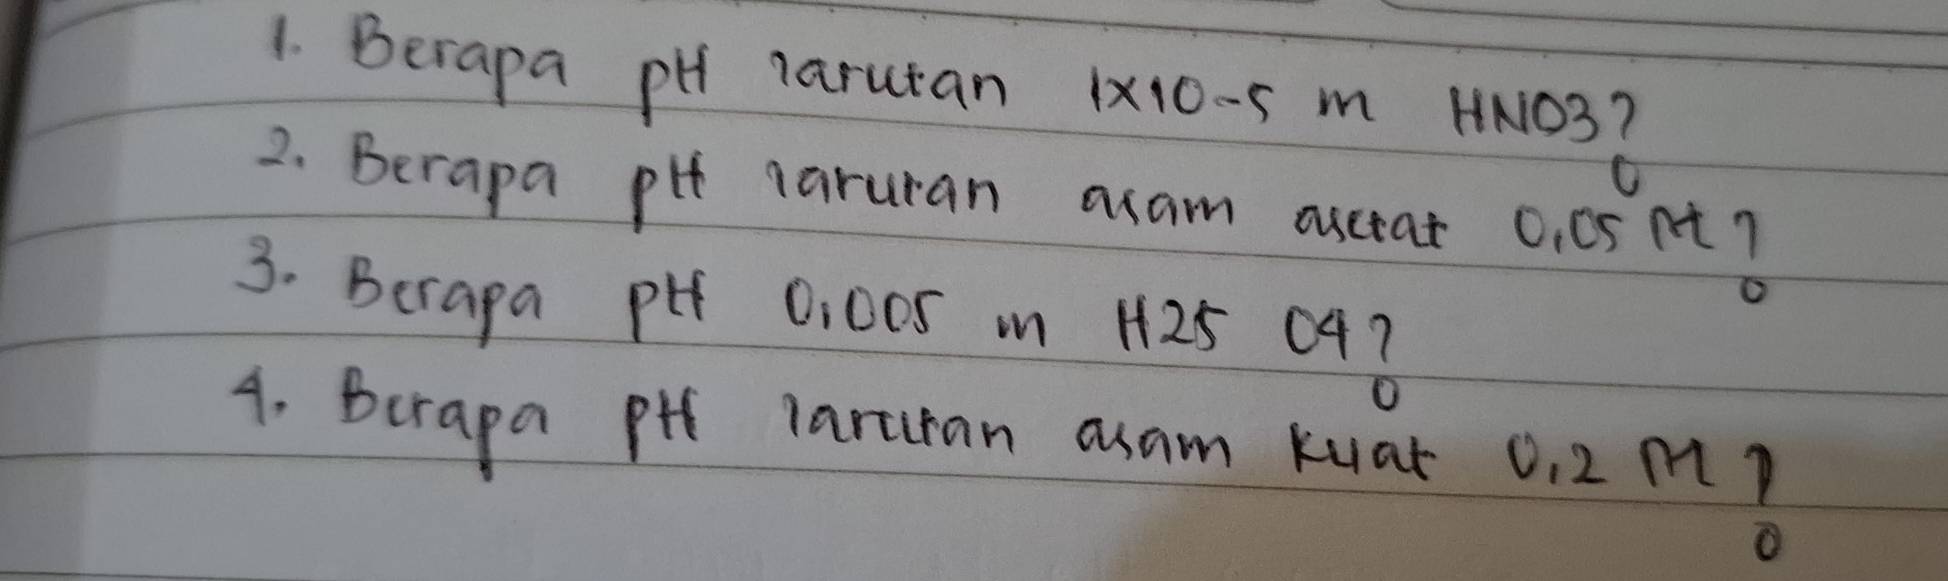 1. Berapa pH larutan 1x10-5 m HNO3?
2. Berapa pH larutan asam asetat 0,05 M?
3. Berapa pH 0,005 m H2S O4?
4. Berapa pH larutan asam kuat 0,2 M?